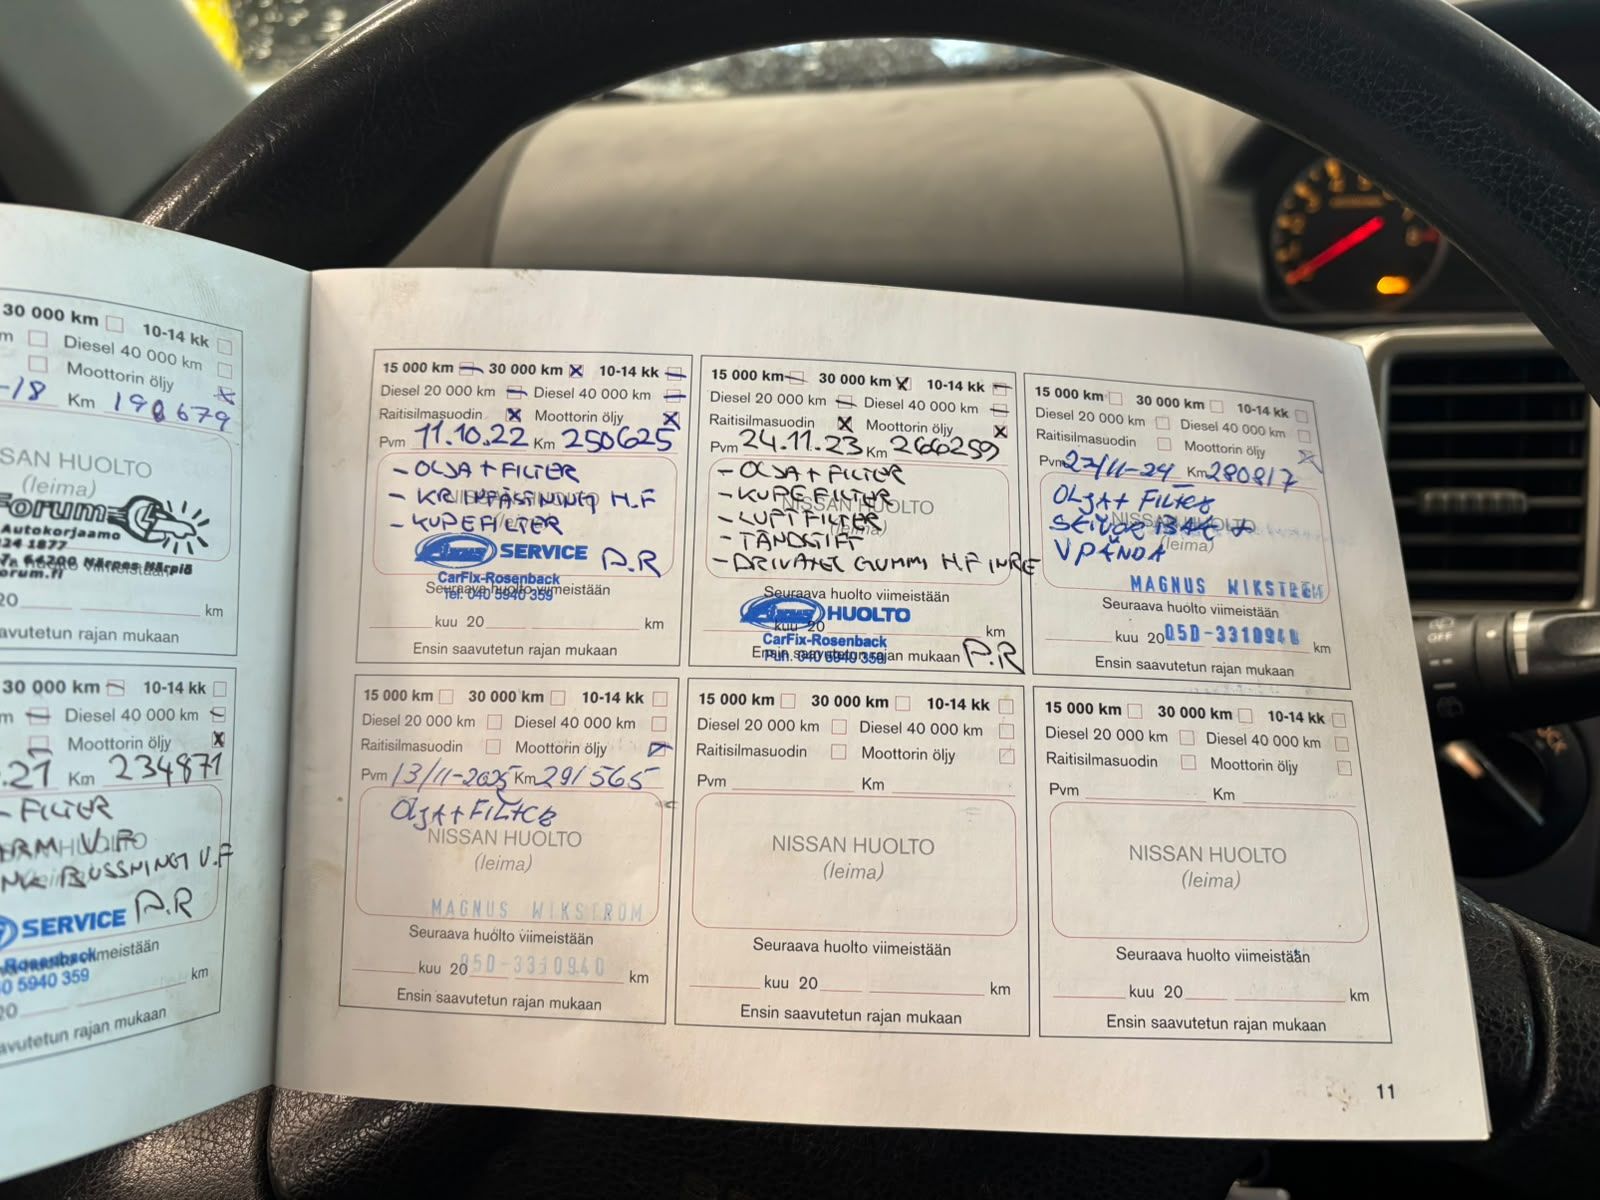 30 000 km 10-14 kk
m Diesel 40 000 km
Moottorin öljy
-18 Km 198679
SSAN HUOLTO
(leima)
Forum
Autokorjaamo
224 1877
Närpes Närpiö
orum.fi
20 km
avutetun rajan mukaan
30 000 km 10-14 kk
m Diesel 40 000 km
Moottorin öljy
.21 Km 234871
- FILTER
BUSSNING V.F
SERVICE P.R
Rosenback
0 5940 359
20 km
avutetun rajan mukaan
15 000 km 30 000 km 10-14 kk
Diesel 20 000 km Diesel 40 000 km
Raitisilmasuodin Moottorin öljy
Pvm 11.10.22 Km 250625
- OLJA + FILTER
H.F
- KUPEFILTER
SERVICE P.R
CarFix-Rosenback
Tel. 040 5940 359
Seuraava huolto viimeistään
kuu 20 km
Ensin saavutetun rajan mukaan
15 000 km 30 000 km 10-14 kk
Diesel 20 000 km Diesel 40 000 km
Raitisilmasuodin Moottorin öljy
Pvm 24.11.23 Km 266259
- OLJA + FILTER
- KUPEFILTER
NISSAN HUOLTO
- LUFTFILTER
(leima)
- TÄNDSTIFT
- DRIVAXEL GUMMI H.F INRE
Seuraava huolto viimeistään
HUOLTO
kuu 20 km
CarFix-Rosenback
Puh. 040 5940 359
Ensin saavutetun rajan mukaan P.R
15 000 km 30 000 km 10-14 kk
Diesel 20 000 km Diesel 40 000 km
Raitisilmasuodin Moottorin öljy
Pvm 27/11-24 Km 280817
OLJA + FILTER
NISSAN HUOLTO
(leima)
VPÄNDA
MAGNUS WIKSTRÖM
Seuraava huolto viimeistään
kuu 20 050-3310940 km
Ensin saavutetun rajan mukaan
15 000 km 30 000 km 10-14 kk
Diesel 20 000 km Diesel 40 000 km
Raitisilmasuodin Moottorin öljy
Pvm 13/11-2025 Km 291565
OLJA + FILTER
NISSAN HUOLTO
(leima)
MAGNUS WIKSTRÖM
Seuraava huolto viimeistään
kuu 20 050-3310940 km
Ensin saavutetun rajan mukaan
15 000 km 30 000 km 10-14 kk
Diesel 20 000 km Diesel 40 000 km
Raitisilmasuodin Moottorin öljy
Pvm Km
NISSAN HUOLTO
(leima)
Seuraava huolto viimeistään
kuu 20 km
Ensin saavutetun rajan mukaan
15 000 km 30 000 km 10-14 kk
Diesel 20 000 km Diesel 40 000 km
Raitisilmasuodin Moottorin öljy
Pvm Km
NISSAN HUOLTO
(leima)
Seuraava huolto viimeistään
kuu 20 km
Ensin saavutetun rajan mukaan
11
OFF